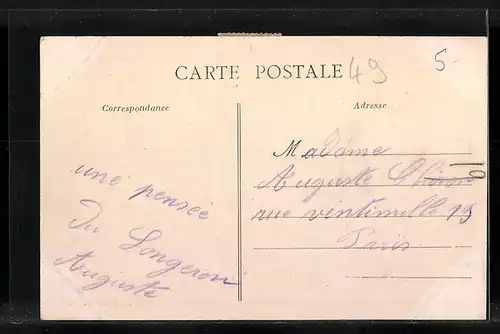 CARTE POSTALE
49
5
Correspondance
Adresse
une pensée
Du Longeron
Auguste
Madame
Auguste
rue vintimille 19
Paris
19